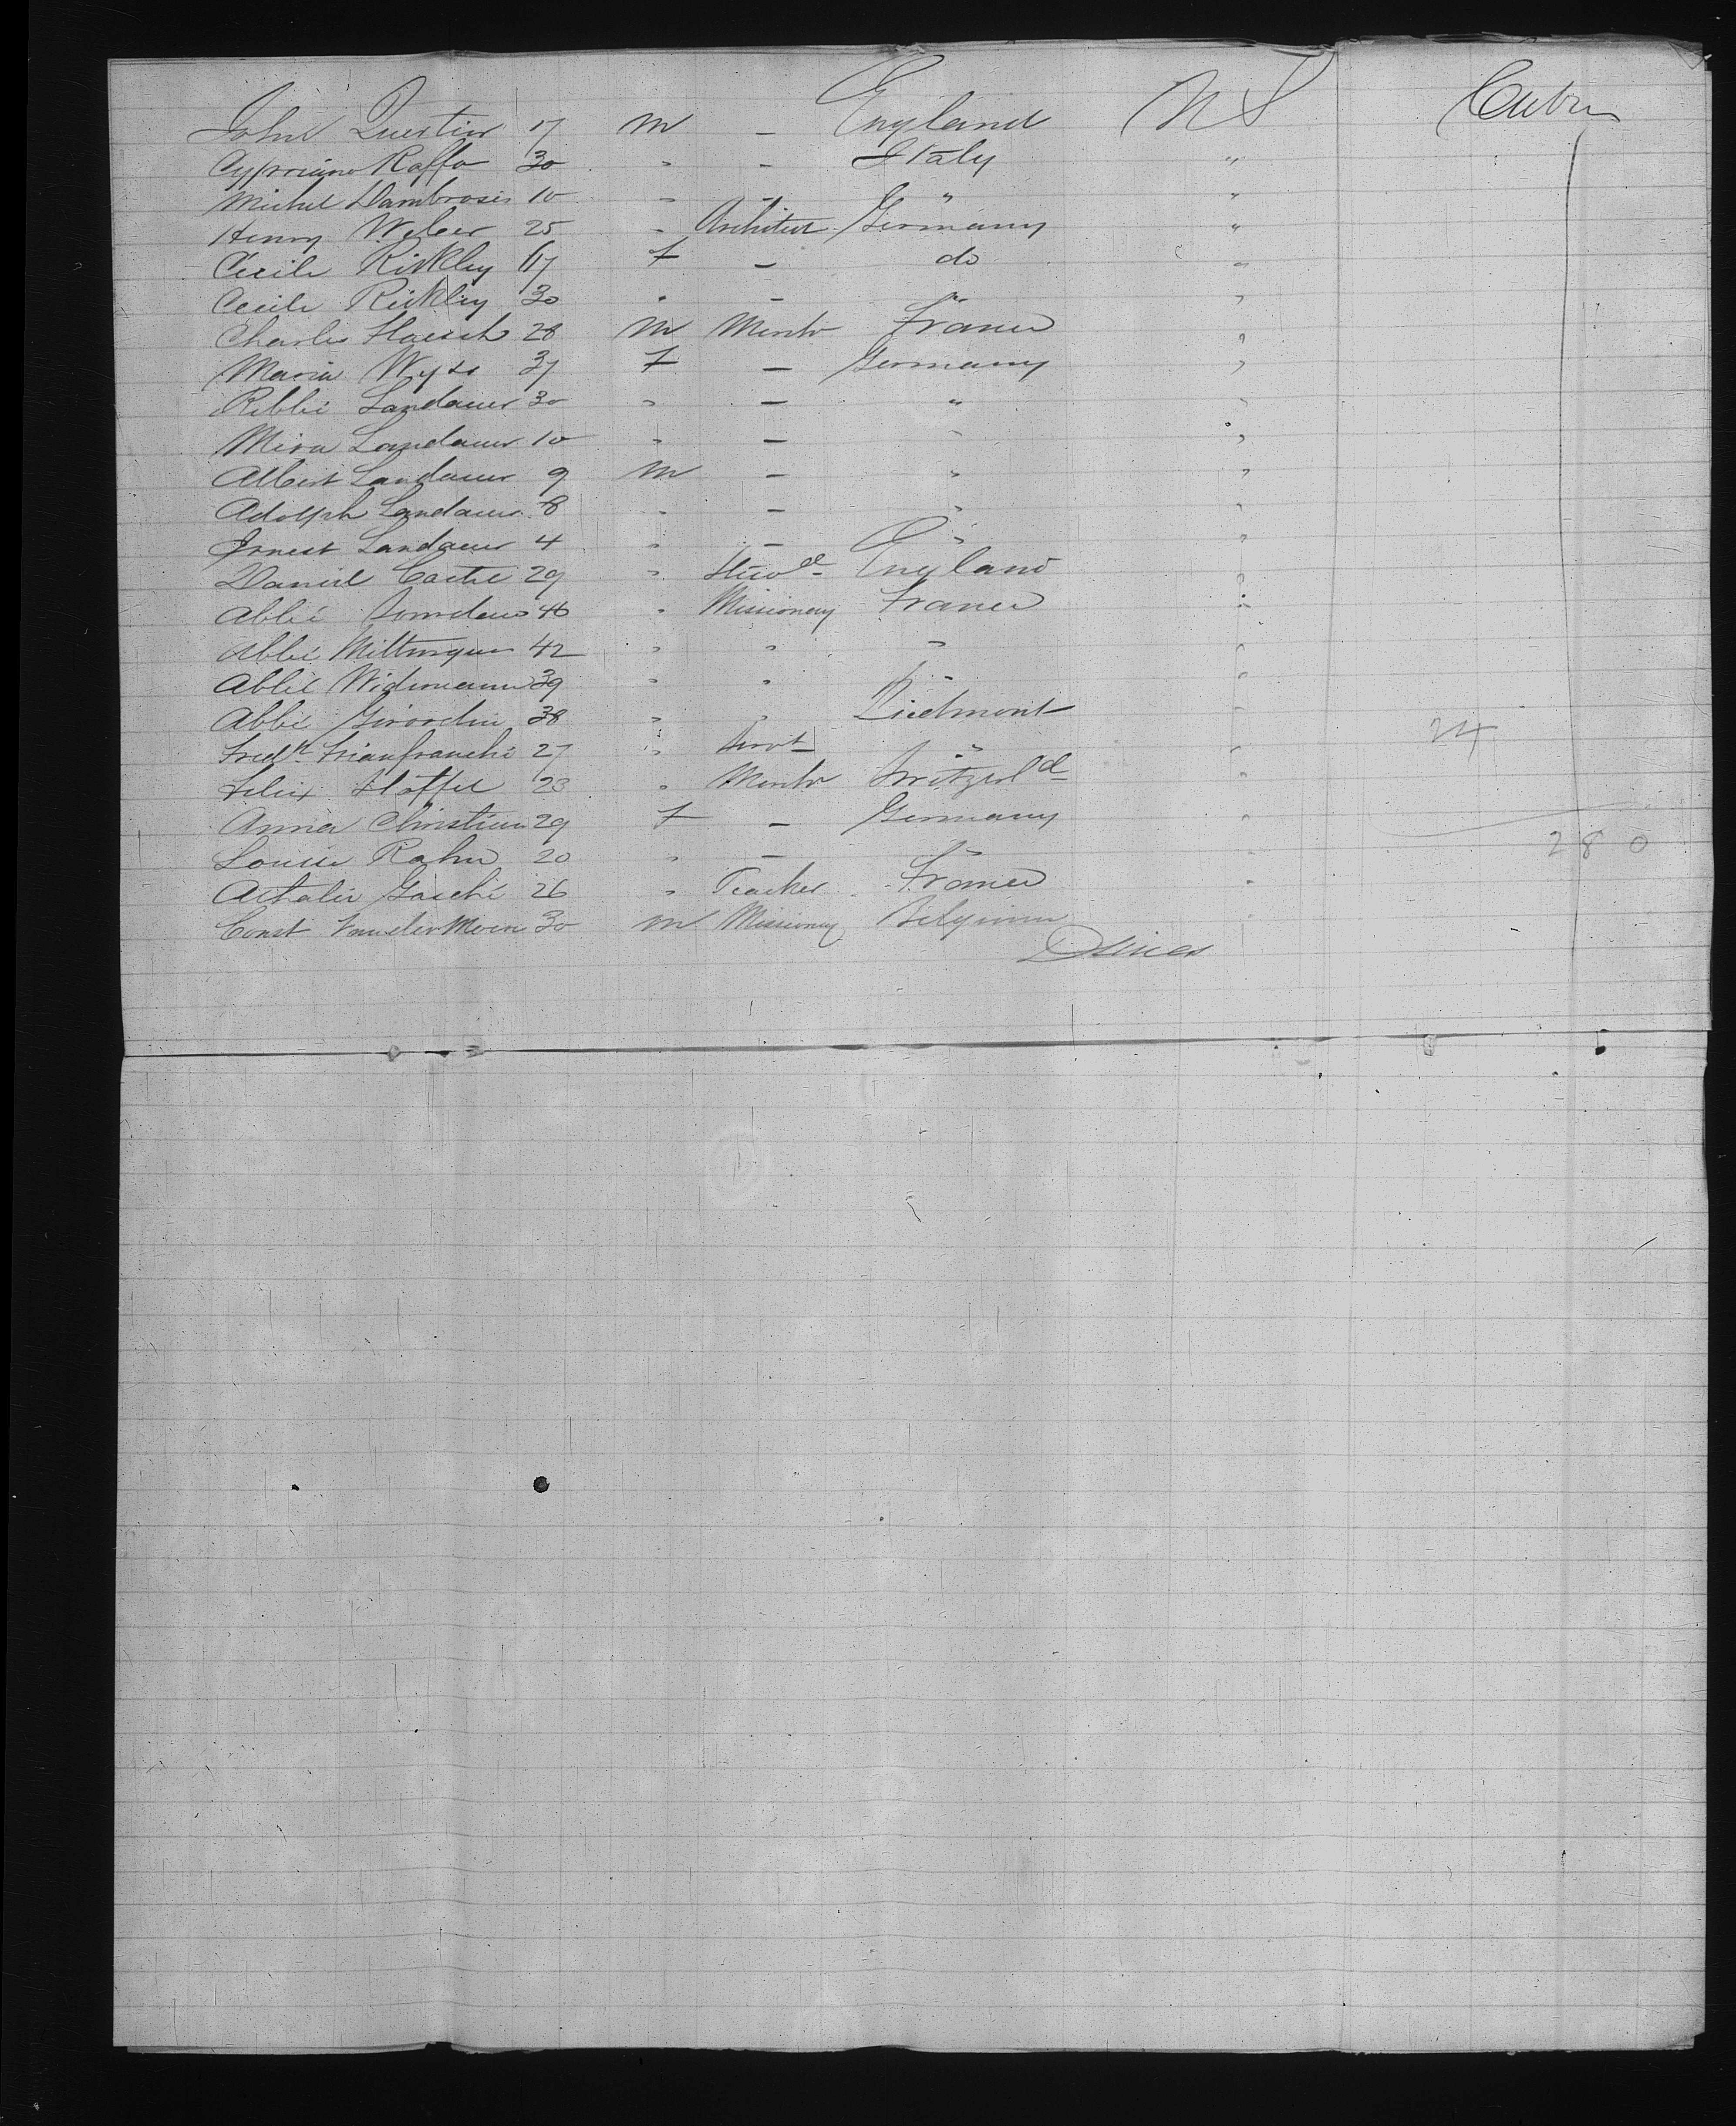 John Quertier 17 M — England U S Cabin
Cypriano Raffo 30 " — Italy "
Michel Dambrosis 10 " — " "
Henry Weber 25 " Architect Germany "
Cécile Rickley 17 F — do "
Cecile Rickley 30 " — " "
Charles Haesch 28 M Mercht France "
Maria Wyss 37 F — Germany "
Landauer 30 " — " "
Mira Landauer 10 " — " "
Albert Landauer 9 M — " "
Adolph Landauer 8 " — " "
Ernest Landauer 4 " — " "
Daniel 29 " Stewd England "
Abbé 40 " Missionary France "
Abbé 42 " " " "
Abbé Widemann 39 " " " "
Abbé Girardin 38 " " Piedmont "
Fredk Gianfranchi 27 " Servt " " 24
Felix Hoffel 23 " Mercht Switzerld "
Anna Christien 29 F — Germany "
Louise Rahn 20 " — " " 280
Athalie Gasché 26 " Teacher France "
Const Vander Moere 30 M Missionary Belgium "